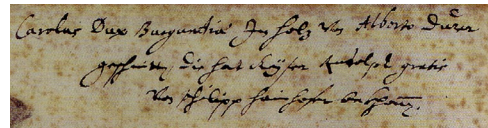 Carolus Dux Burgundiae In holz von Alberto Dürer
geschnitten, die hat Kayser Rudolph gratis
von philipp hainhofer bekhomen.